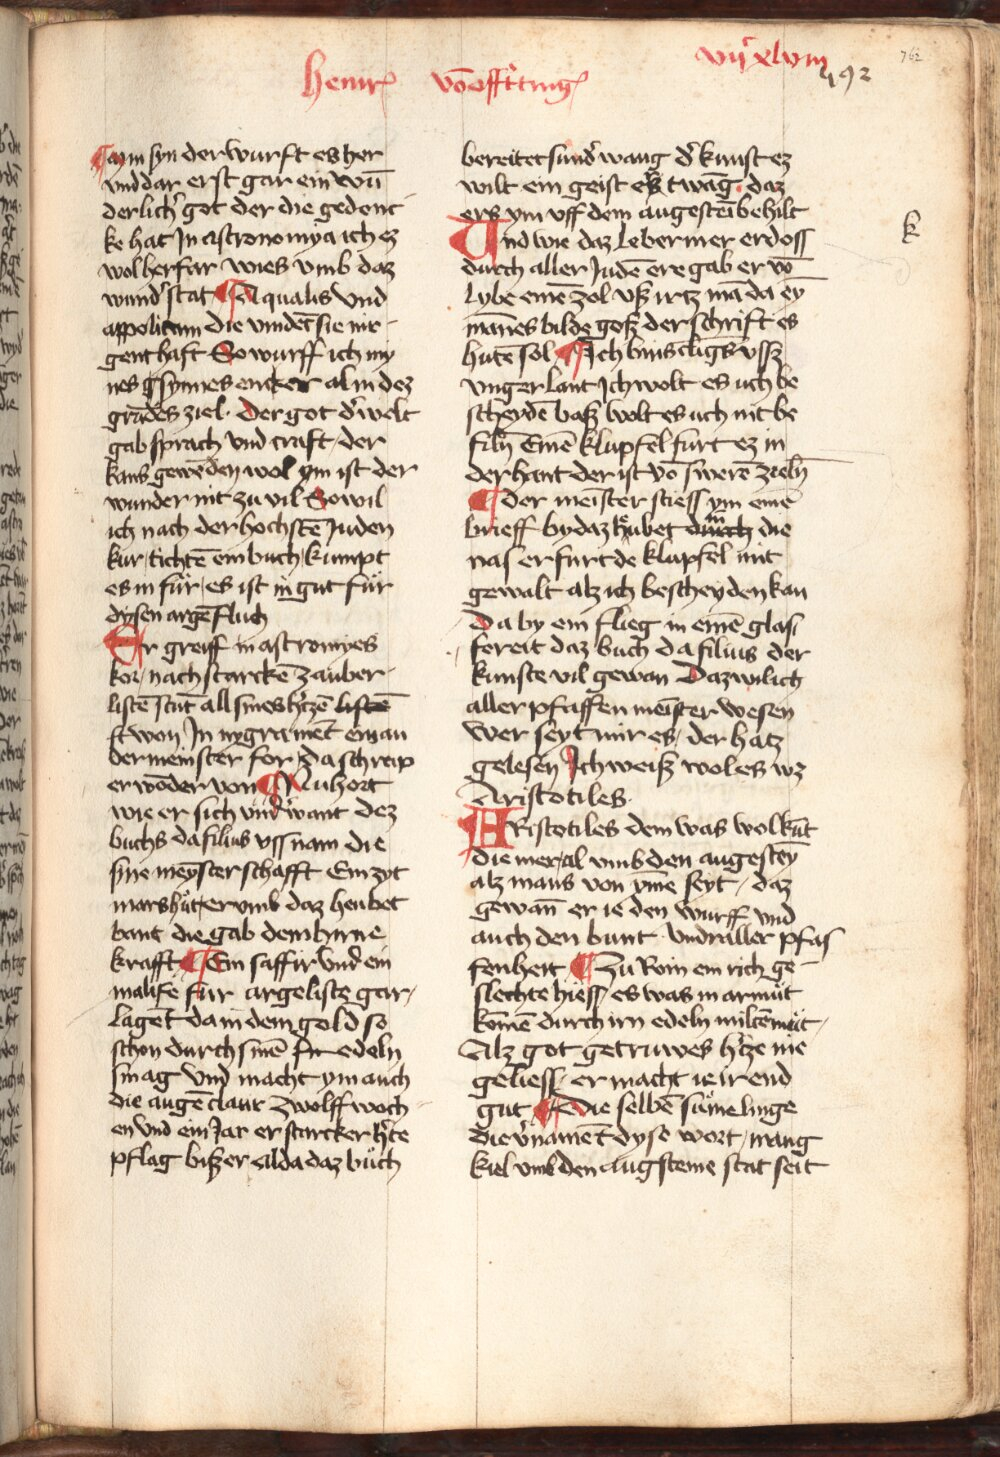 Heinr̄ vō offttinḡ
vijᶜ xlviij
492
762
ayn syn der wurft es her
vnd dar erst gar ein wū
derlich̓ got der die gedenc
ke hat In astronomya ich ez
wol herfar wies vmb daz
wund̓ stat Aqualis vnd
appolitum die vindēt sie nir
gent haft So wurff ich my
nes gsynnes encker al in dez
grūdes ziel. Der got d̓ welt
gab sprach vnd craft, der
kans gewēden wol ym ist der
wunder nit zu vil So wil
ich nach der hochstē Juden
kur, tichtē ein buch, kumpt
es in für, es ist in gut für
dysen argē fluch
Er greiff in astromyes
kor, nach starckē zauber
listē stūt all sines h̓tzē listē
ft won In nygramēt ein an
der meinster for, da schreip
er wōder von Nu hort
wie er sich vnd̓want dez
buchs da filius vss nam die
sine meysterschafft Ein zyt
mars hüt, er vmb daz heubet
bant die gab dem hirne
krafft Ein saffir vnd ein
malife für argeliste gar,
lagēt da in dem gold so
schon durch sinē fir edeln
smag vnd macht ym auch
die augē claur zwolff woch
en vnd ein Jar er starcker h̓te
pflag biß er alda daz büch
bereitet sund̓ wang d̓ kunst ez
wilt ein geist er es twāg. daz
ers ym vff dem augesteī behilt
Vnd wie daz lebermer erdoss
durch aller Judē ere gab er vō
lybe einē zol vß irtz mā da ey
mānes bilde goß der schrift es
hutē sol Ich bins clīgs vss
vnger lant Ich wolt es uch be
scheydē baß wolt es uch nit be
filn̄ Einē klupfel furt ez in
der hant der ist vō swerē zieln̄
der meister stiess ym einē
brieff by daz hubet durch in die
nas er furt de klupfel mit
gewalt alz ich bescheyden kan
Da by ein flieg in einē glas,
fereit daz buch da filius der
kunste vil gewan Daz wil ich
aller pfaffen meister wesen
wer seyt mir es, der hatz
gelesen Ich weiß wol es wz
Aristotiles.
ARistotiles dem was wol kūt
die mer, al vmb den augestēy
alz mans von yme seyt, daz
gewan̄ er ie den wurff vnd
auch den bunt vnd̓ aller pfaf
fenheit Zu Rom ein rich ge
slechte hiess es was in armüt
komē durch irn edeln miltē müt,
Alz got getruwes h̓tze nie
geliess, er macht ie ir end
gut Die selbē süme linge
die v̓namēt dyse wort, mang
kiel vmb den augsteine stat seit
k